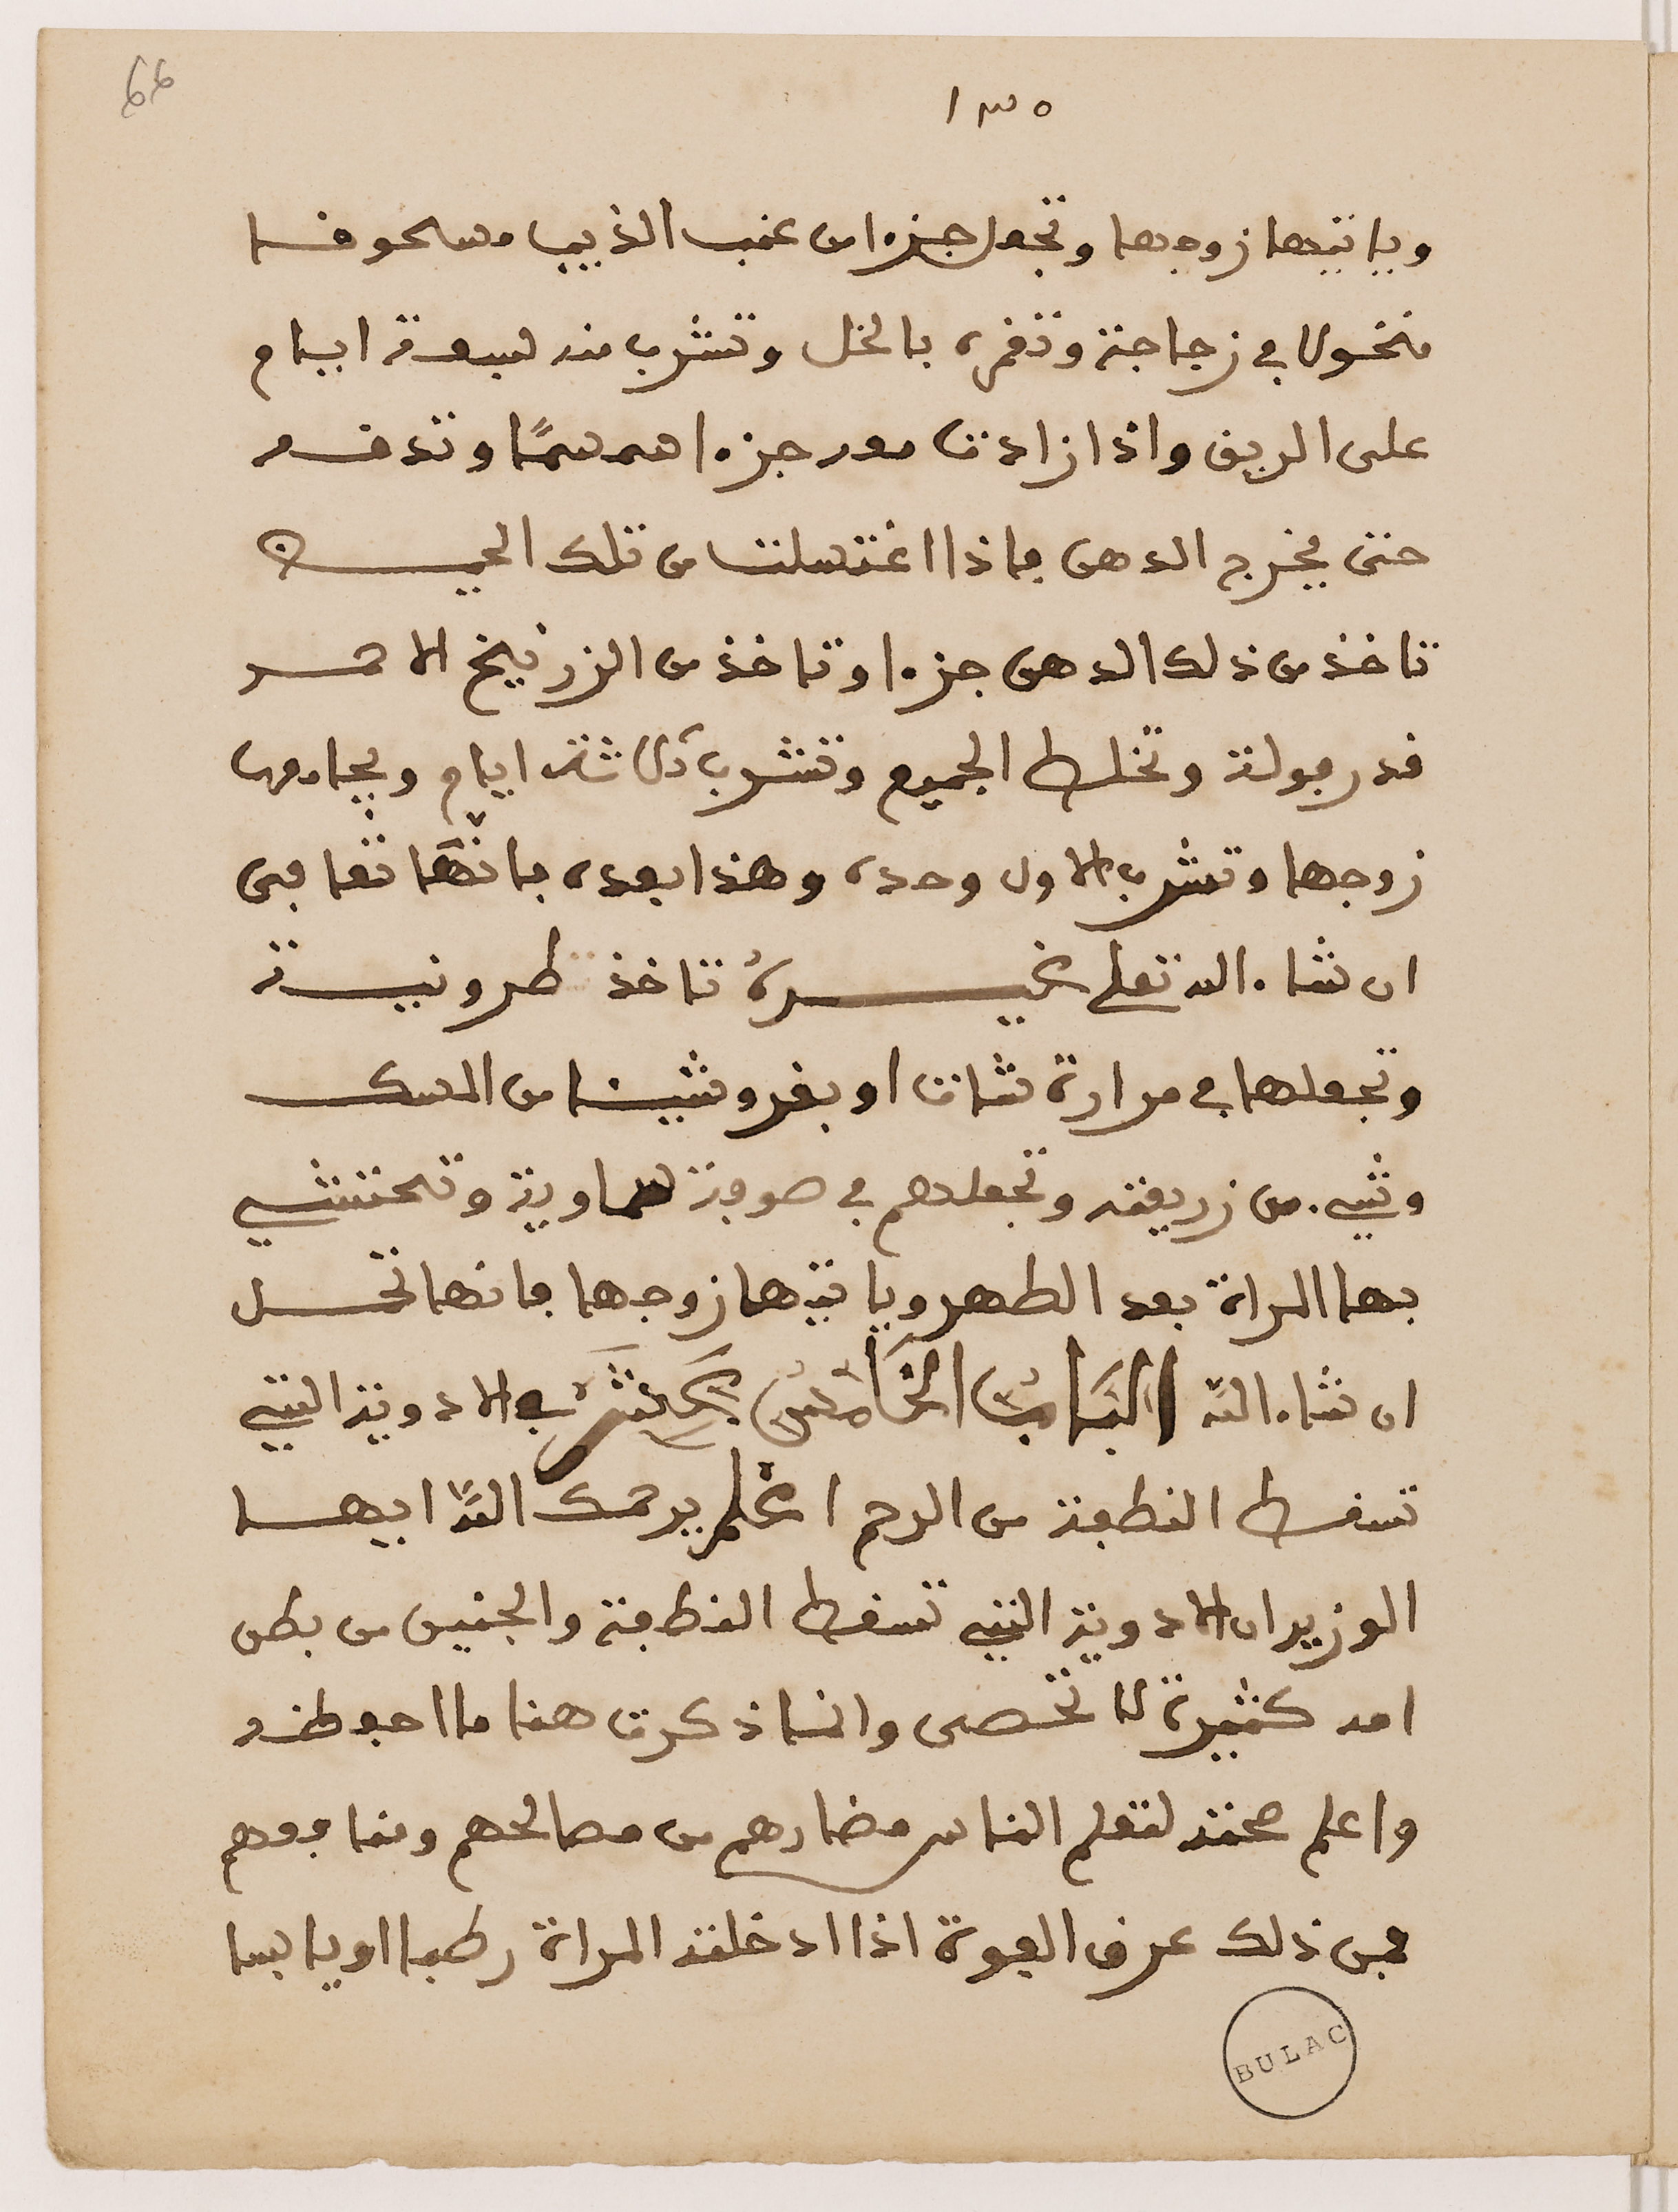 66
١٣٥
وياتيها زوجها وتجعل جزءا من عنب الذيب مسحوقا
منخولا في زجاجة وتغمره بالخل وتشرب منه سبعة ايام
على الريق واذا زادت معه جزءا سمسما وتدقه
حتى يخرج الدهن فاذا اغتسلت من تلك الحيضة
تاخذ من ذلك الدهن جزءا وتاخذ من الزرنيخ الاحمر
قدر فولة وتخلط الجميع وتشرب ثلاثة ايام ويجامعها
زوجها وتشرب الاول وحده وهذا بعده فانها تعافى
ان شاء الله تعلى غيره تاخذ طرونية
وتجعلها في مرارة شات او بغر وشيئا من المسك
وشيء من زريعته وتجعلهم في صوفة سماوية وتحتشي
بها المراة بعد الطهر وياتيها زوجها فانها تحمل
ان شاء الله الباب الخامس عشر في الادوية التي
تسقط النطفة من الرحم اعلم يرحمك الله ايها
الوزير ان الادوية التي تسقط النطفة والجنين من بطن
امه كثيرة لا تحصى وانما ذكرت هنا ما احفظه
واعلم صحته لتعلم الناس مضارهم من مصالحهم ومنافعهم
فمن ذلك عرق الفوة اذا ادخلته المراة رطبا او يابسا
BULAC